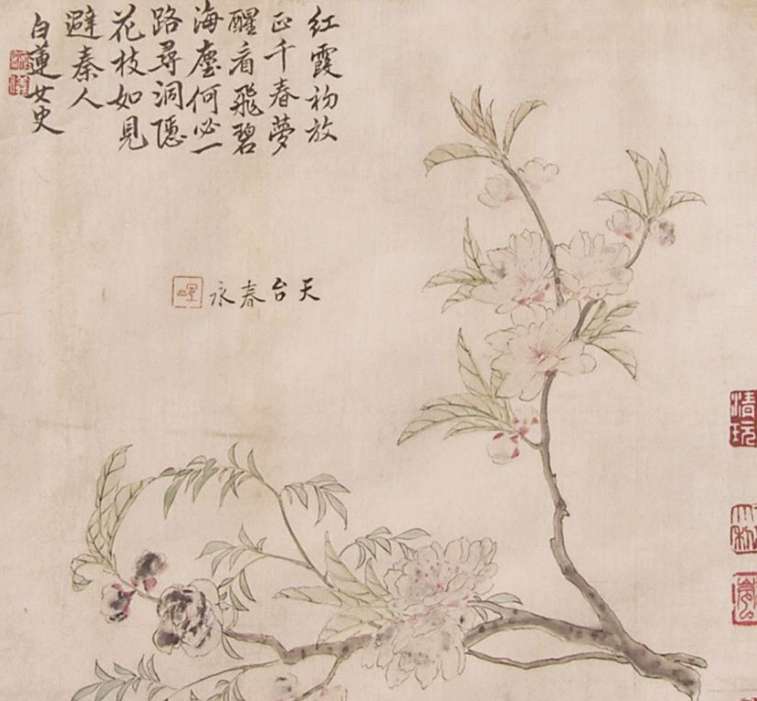 紅霞初放
正千春夢
醒看飛碧
海塵何必一
路尋洞隱
花枝如見
避秦人
白蓮女史
天台春永
清玩